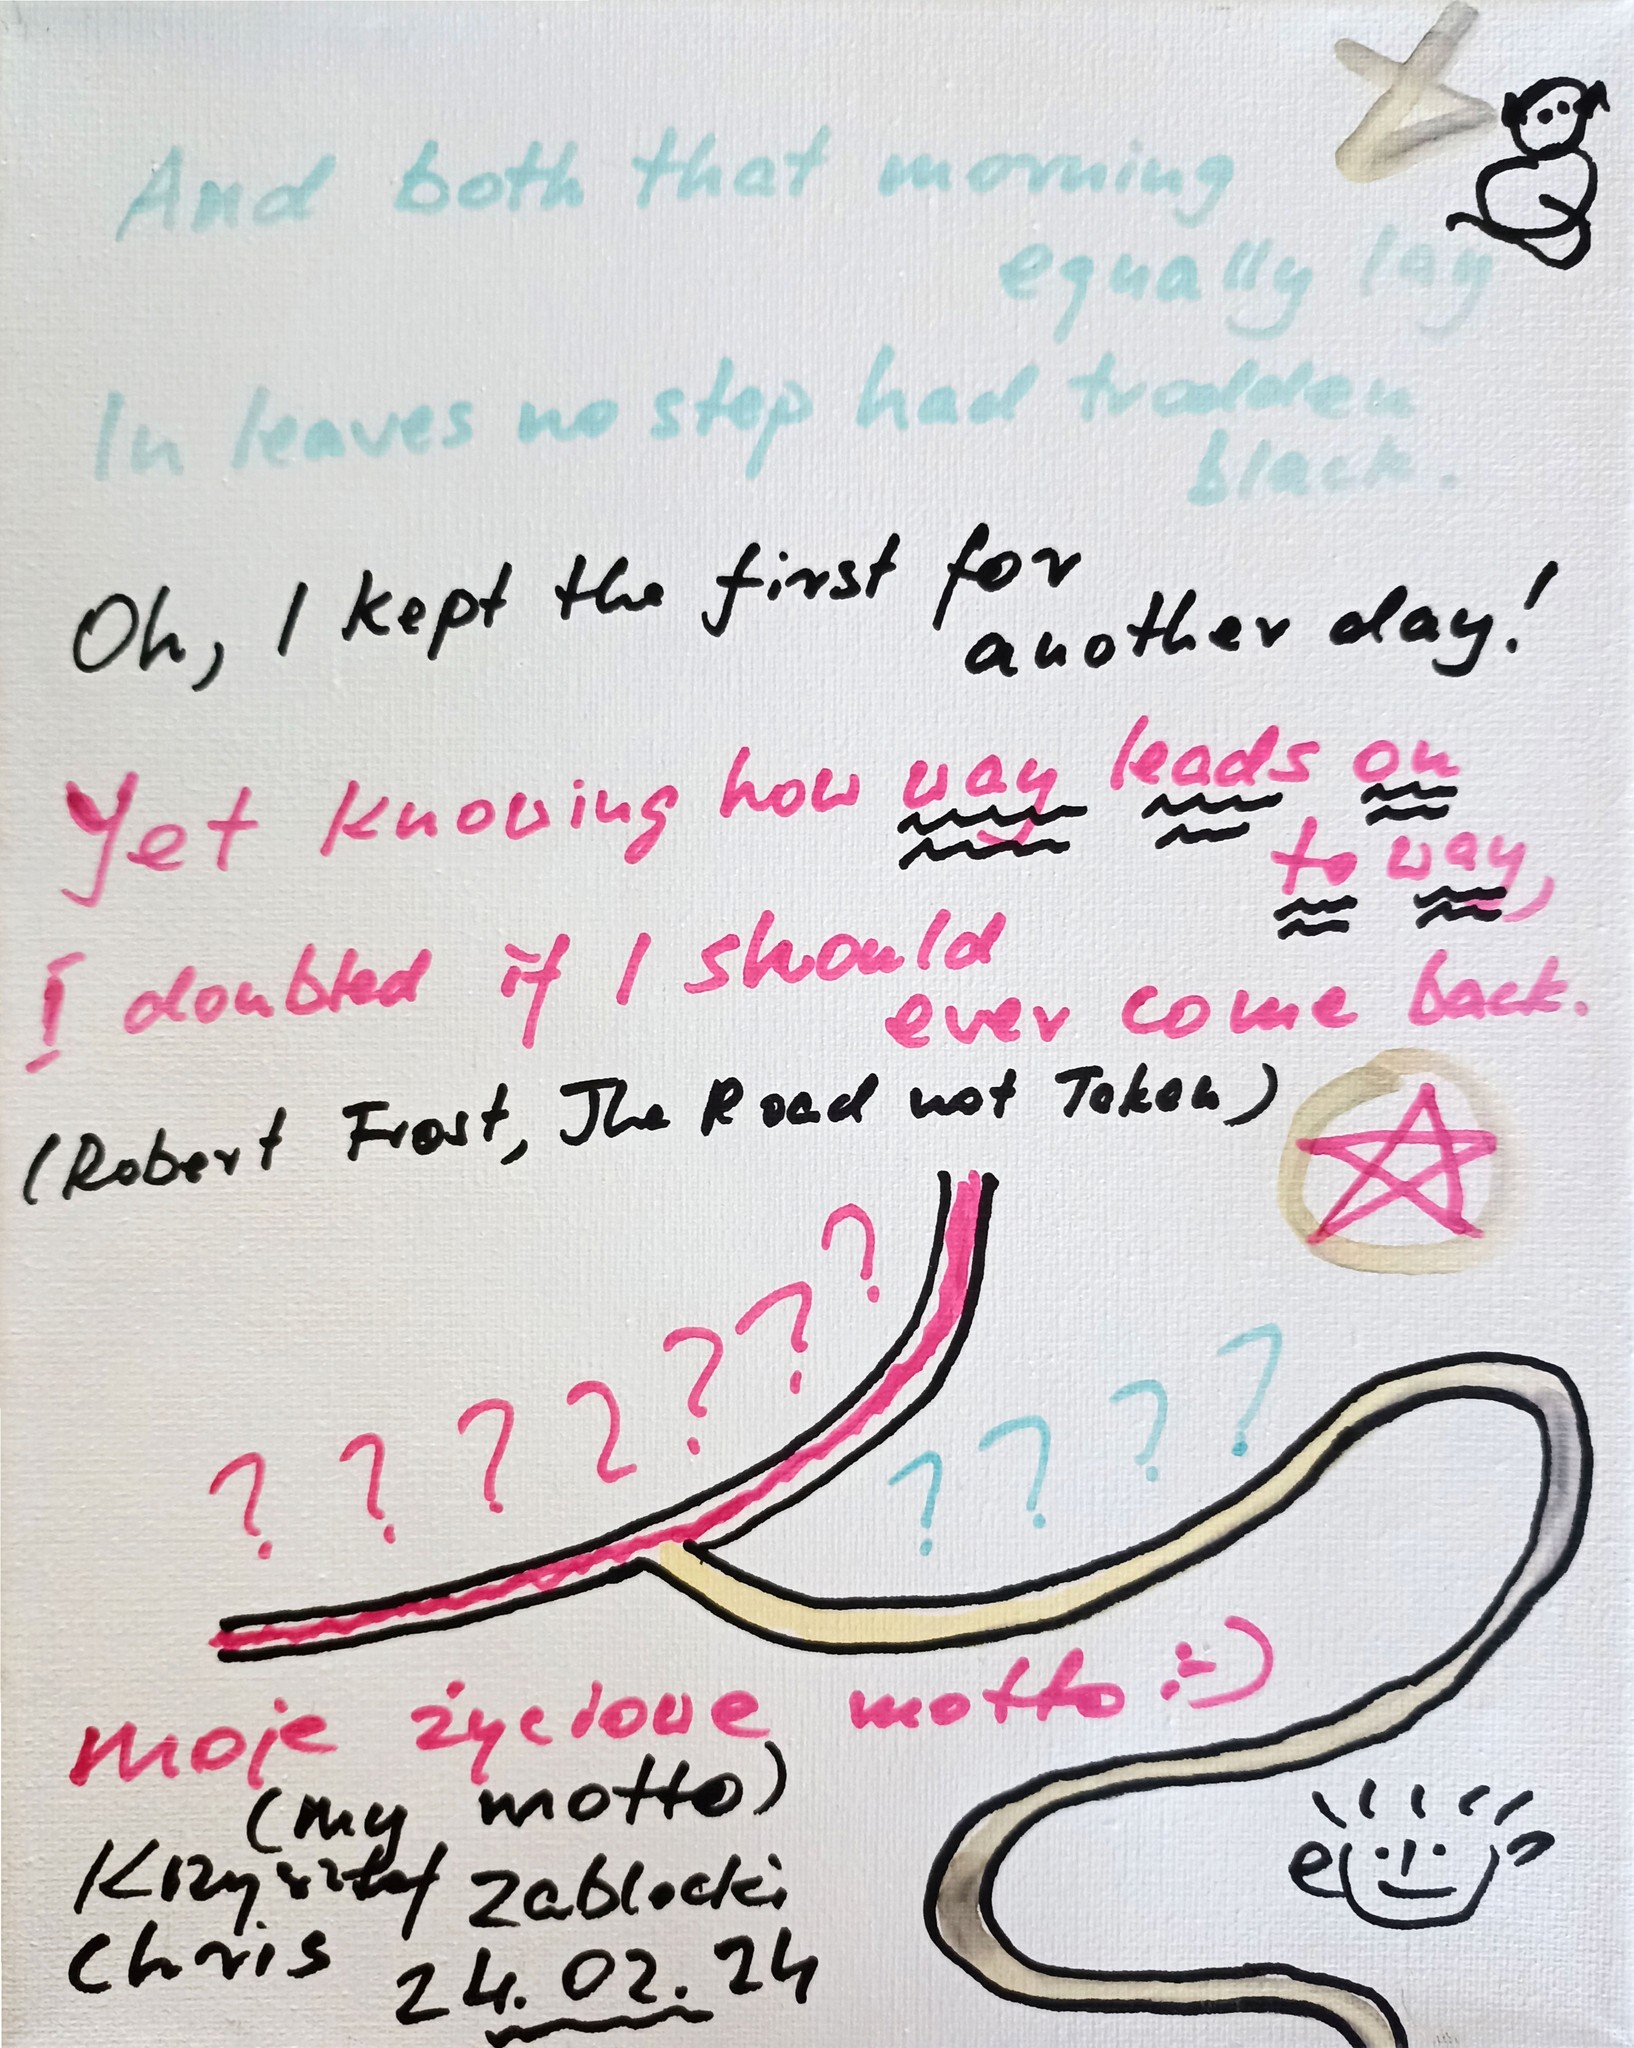 And both that morning
equally lay
In leaves no step had trodden
black.
Oh, I kept the first for
another day!
Yet knowing how way leads on
to way,
I doubted if I should
ever come back.
(Robert Frost, The Road not Taken)
? ? ? ? ? ? ?
? ? ? ?
moje życiowe motto :-)
(my motto)
Krzysztof Zablocki
Chris 24.02.24